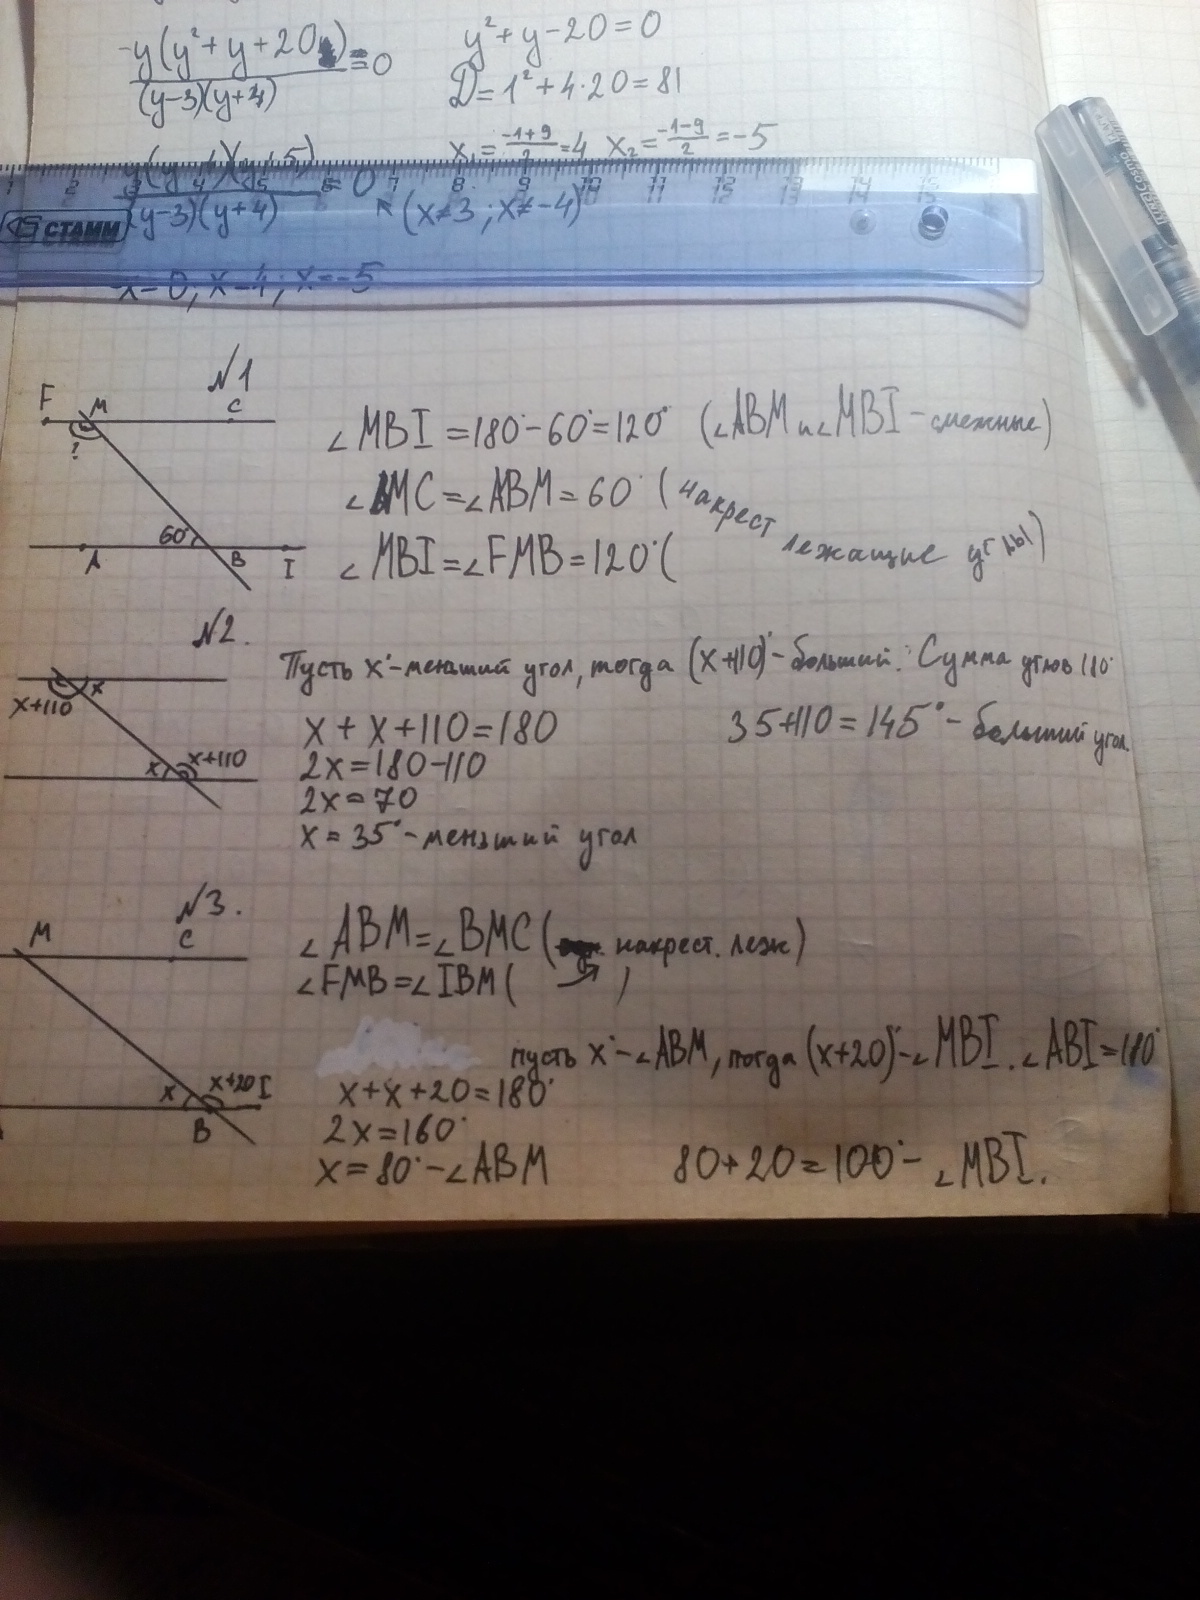 -y(y²+y+20)=0
(y-3)(y+4)
y²+y-20=0
D=1²+4·20=81
x₁=-1+9/2=4 x₂=-1-9/2=-5
y(y-4)(y+5)=0
(y-3)(y+4)
(x≠3; x≠-4)
1 2 3 4 5 6 7 8 9 10 11 12 13 14 15
СТАММ
x=0; x=4; x=-5
N1
F M C
?
60°
A B I
∠MBI=180°-60°=120° (∠ABM и ∠MBI - смежные)
∠BMC=∠ABM=60° (накрест
лежащие углы)
∠MBI=∠FMB=120°(
N2.
x+110 x
x x+110
Пусть x°-меньший угол, тогда (x+110)°-больший. Сумма углов 110°
x+x+110=180
2x=180-110
2x=70
x=35°-меньший угол
35+110=145°-больший угол.
N3.
M C
x x+20 I
B
∠ABM=∠BMC (накрест. леж)
∠FMB=∠IBM( )
пусть x°-∠ABM, тогда (x+20)°-∠MBI. ∠ABI=180°
x+x+20=180°
2x=160°
x=80°-∠ABM
80+20=100°-∠MBI.